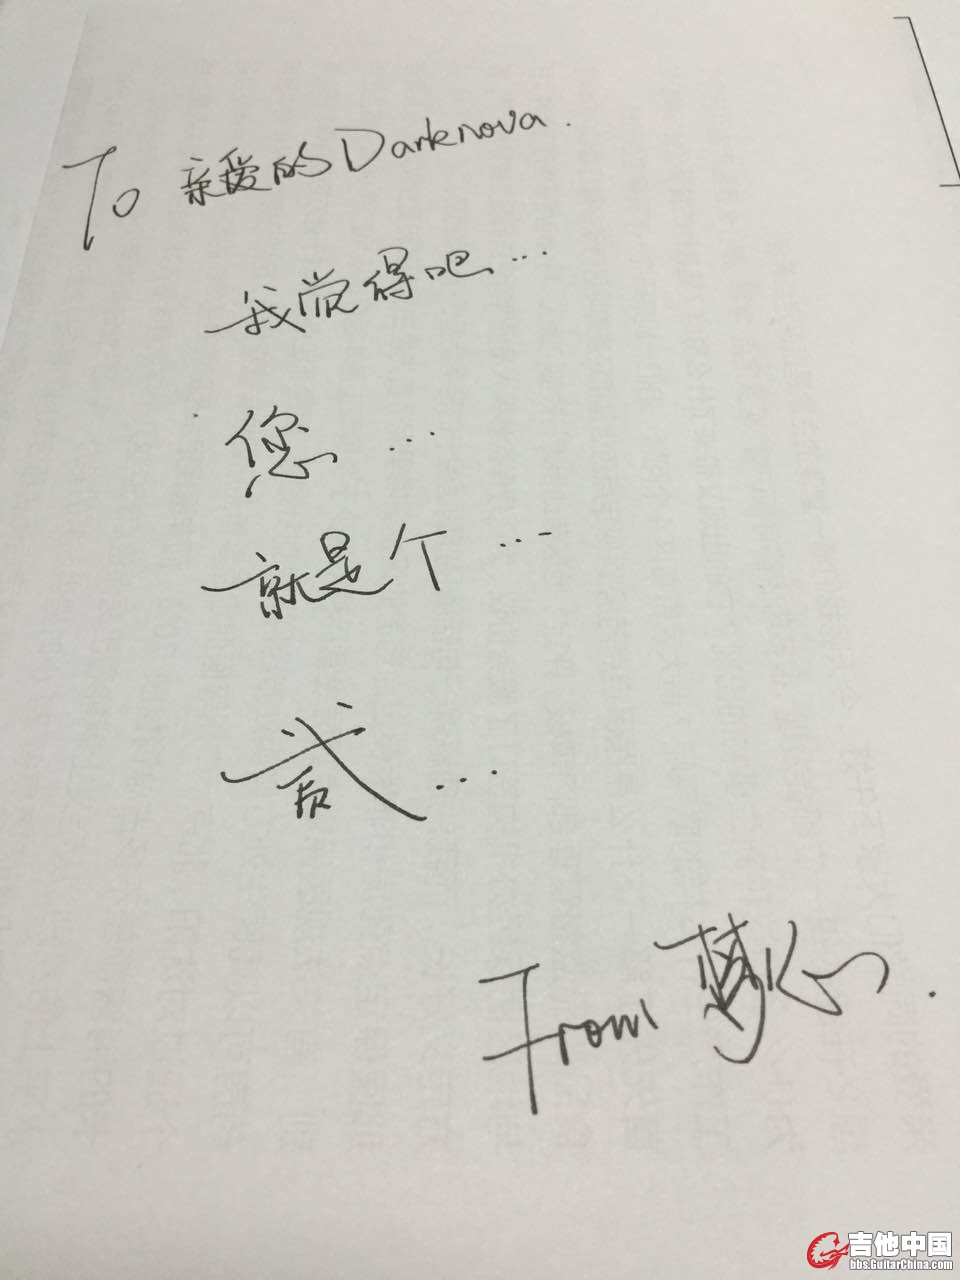 To 亲爱的Darknova.
我觉得吧...
您...
就是个...
贰...
From
吉他中国
bbs.GuitarChina.com